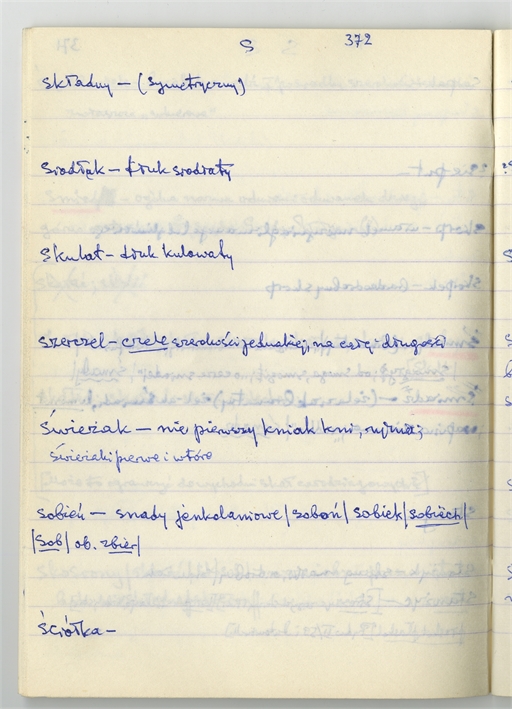 S 372
składny – (symetryczny)
siodłak – druk siodłaty
skulat – druk kulowaty
szerczel – crele szerokości jednakiej, na całej długości
świeżak – nie pierwszy kniak kni,
świeżaki perwe i wtóre
sobień – snady jenkolaniowe / soboń / sobiek / sobiech /
/ sob / ob. zbier /
ściółka –